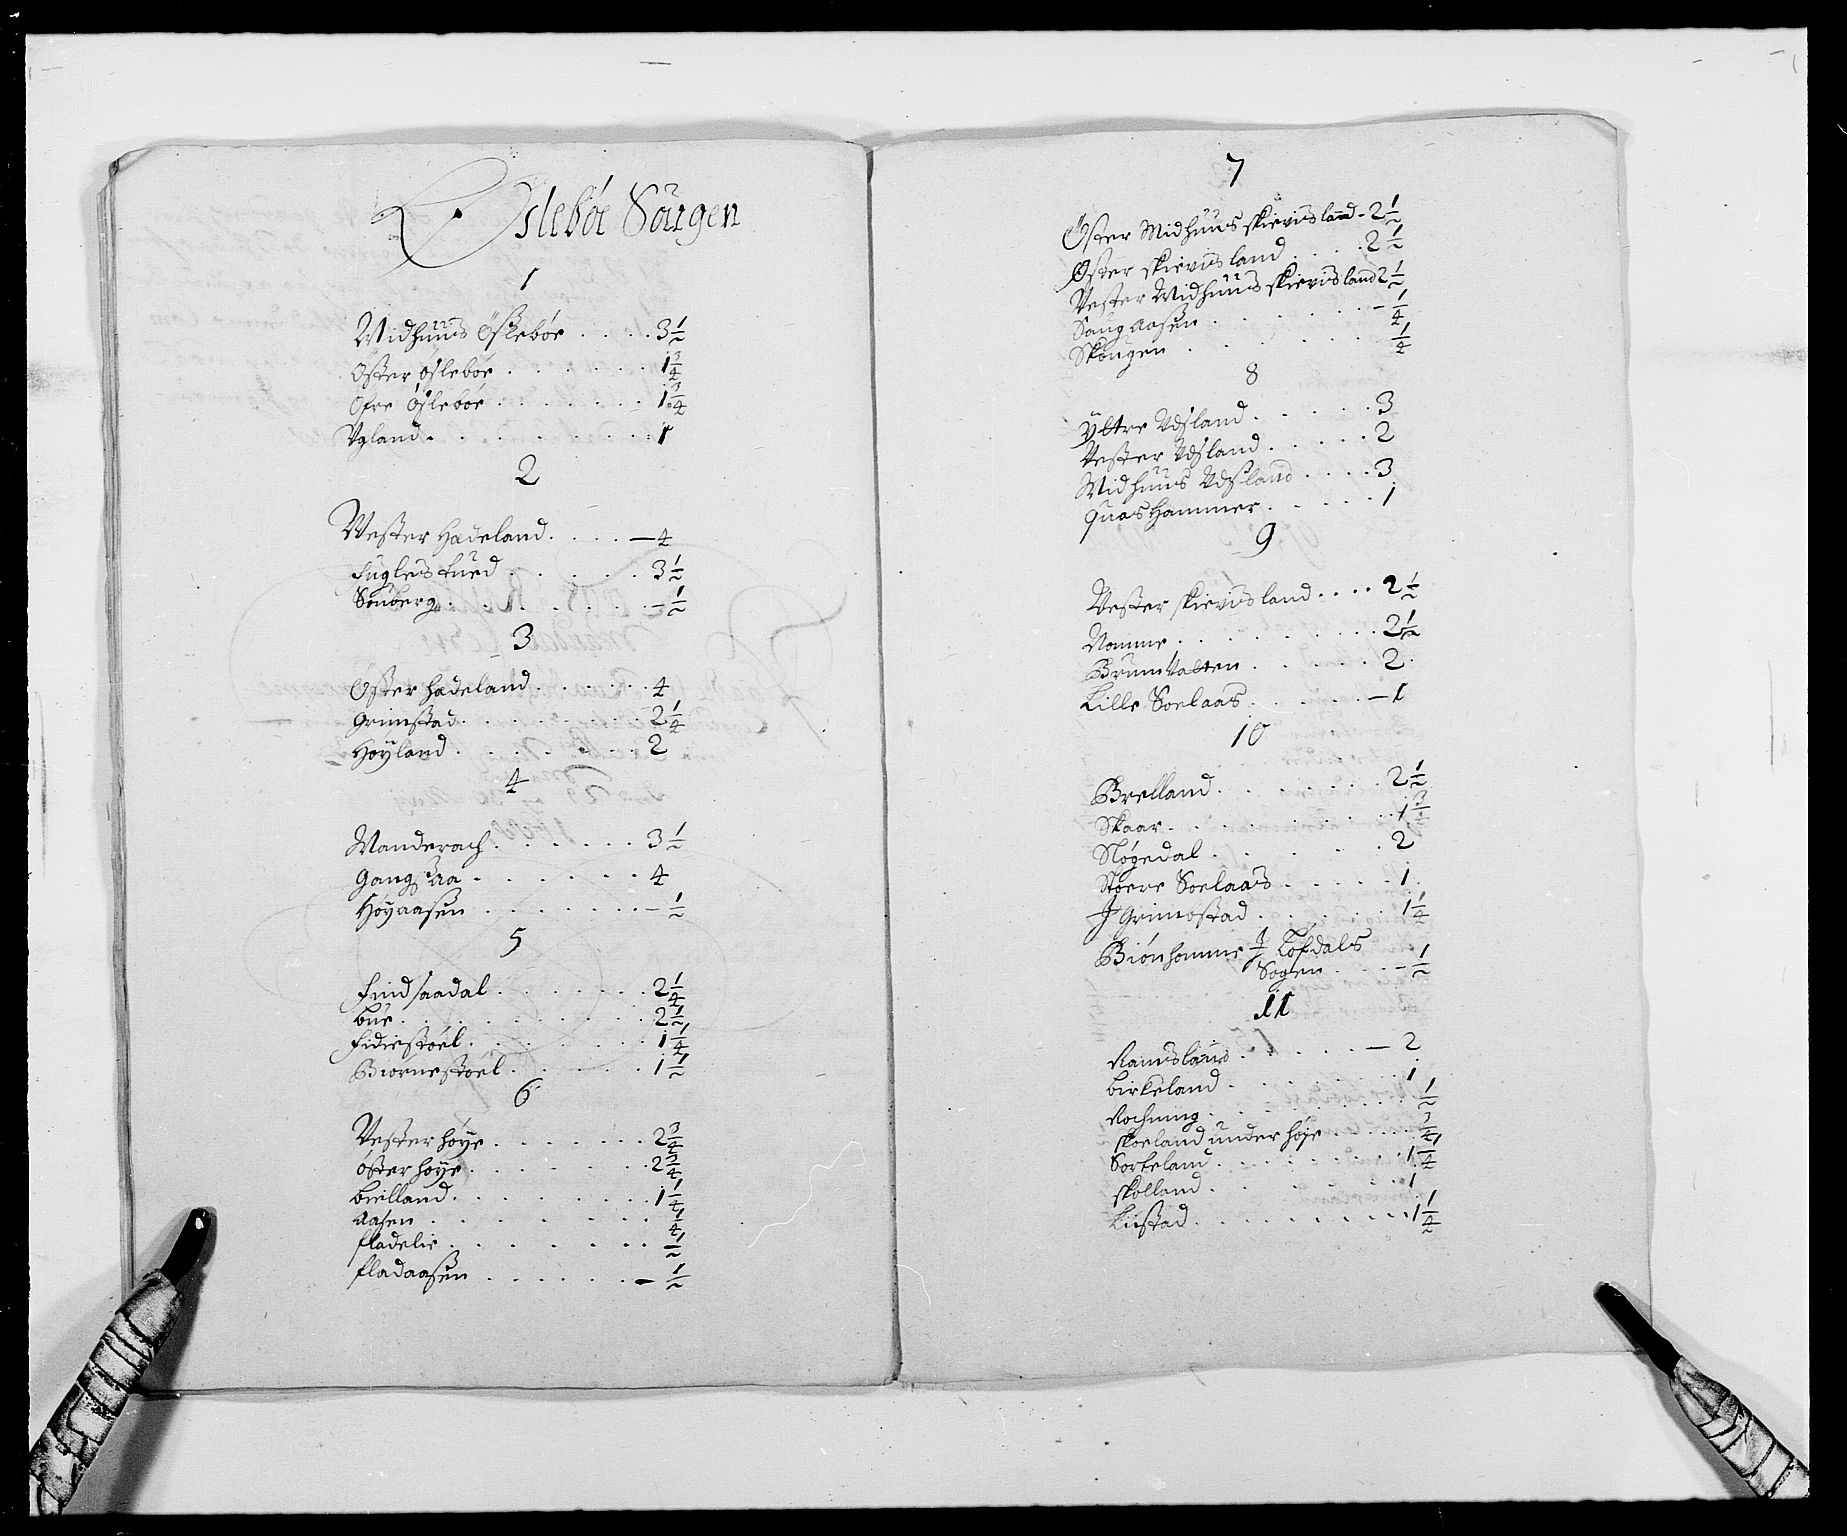 Øslebøe Sougen
1
Midhuus Øslebøe . . . . 3 ½
Øster øslebøe . . . . . . 1 ¾
Øfre Øslebøe . . . . . . . 1 ¾
Vgland . . . . . . . . . 1
2
Vester Hadeland . . . . — 4
fugles tued . . . . . 3 ½
Souberg . . . . . . . – ½
3
Øster hadeland . . . . . 4
Grimstad . . . . . . . 2 ¼
Høyland . . . . . . . 2
4
Manderach . . . . . . 3 ½
Gangs Aa . . . . . . 4
Høyaasen . . . . . . . – ½
5
findsaadal . . . . . . . 2 ¼
bue . . . . . . . . . . 2 ½
fidiestøel . . . . . . . 1 ¼
Biørnestøel . . . . . 1 ½
6
Vester høye . . . . . . 2 ¾
øster høye . . . . . . . 2 ¾
birlland . . . . . . . . 1 ¼
Aasen . . . . . . . ¼
fladelie . . . . . . . ½
fladaasen . . . . . . – ½
7
Øster Midhuus skievisland - 2 ½
Øster skievisland . . . . 2 ½
Vester Midhuus skievisland 2 ½
Saugaasen . . . . . . – ¼
Skougen . . . . . . . ¼
8
Yttre Udsland . . . . . 3
Vester Udsland . . . . . 2
Midhuus Udsland . . . . 3
Quashammer . . . . . 1
9
Vester skievisland . . . . 2 ½
Nomme . . . . . . . . . 2 ½
Brumvatten . . . . . . 2
Lille Soelaas . . . . . – 1
10
Brelland . . . . . . . 2 ½
Skaar . . . . . . . . . 1 ¾
Nøgedal . . . . . . 2
Stoere Soelaas . . . . . 1
J Grimbstad . . . . . . 1 ¼
Biónhomme J Løfdals
Sogen . . . – ½
11
Ramsland . . . . . – 2
birkeland . . . . . . . 1
Rochning . . . . . . . . ½
skoeland under høye . . . . ¾
Sorkeland . . . . . . . 1 ¼
skolland . . . . . . . . 1
Liistad . . . . . . . . . 1 ¼